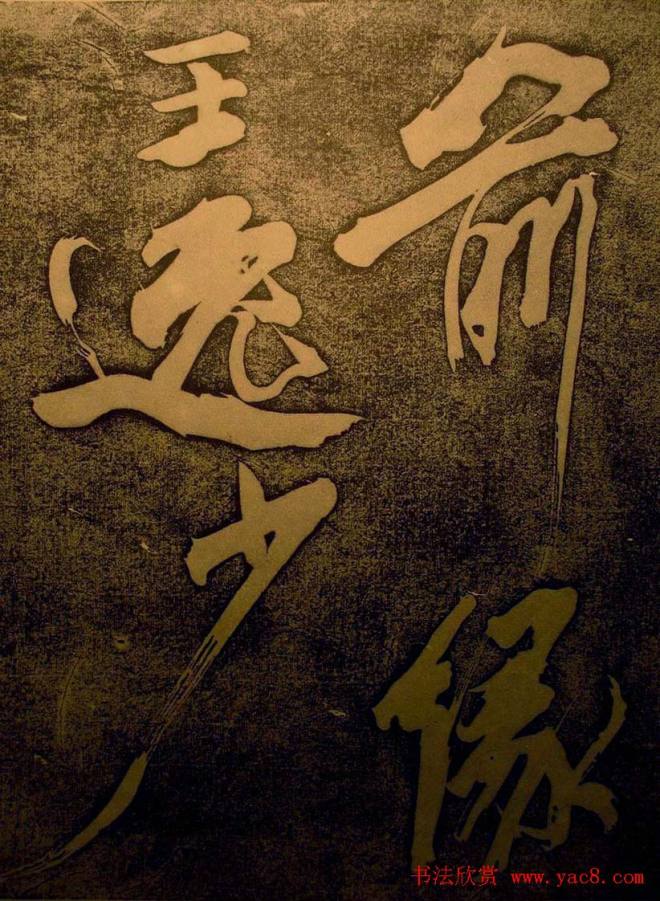 王逸少
书法欣赏 www.yac8.com